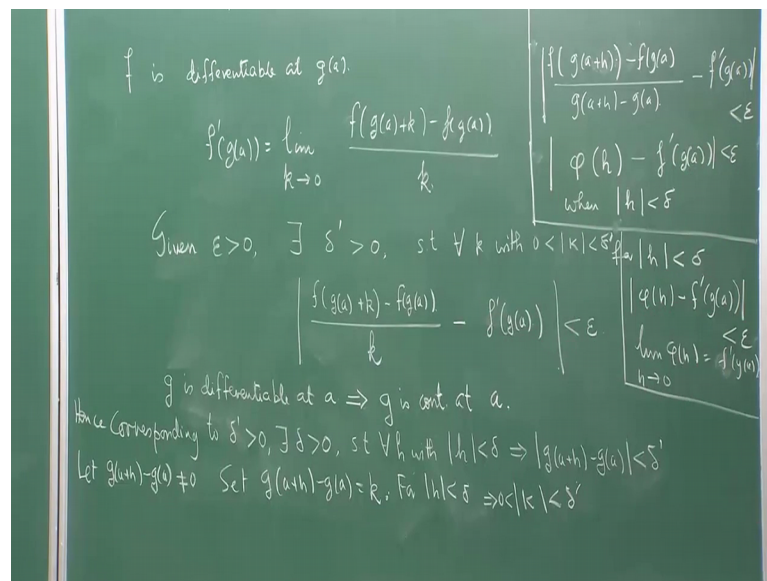 f is differentiable at g(a).
f'(g(a)) = lim k→0 f(g(a)+k) - f(g(a)) / k.
Given ε>0, ∃ δ'>0, st ∀ k with 0<|k|<δ'
| f(g(a)+k) - f(g(a)) / k - f'(g(a)) | < ε
g is differentiable at a ⇒ g is cont. at a.
Hence Corresponding to δ'>0, ∃ δ>0, st ∀ h with |h|<δ ⇒ |g(a+h)-g(a)|<δ'
Let g(a+h)-g(a) ≠ 0 Set g(a+h)-g(a)=k. For |h|<δ ⇒ 0<|k|<δ'
| f(g(a+h)) - f(g(a) / g(a+h) - g(a) - f'(g(a)) |
< ε
| φ(h) - f'(g(a)) | < ε
when |h|<δ
for |h|<δ
| φ(h) - f'(g(a)) |
< ε
lim h→0 φ(h) = f'(g(a))